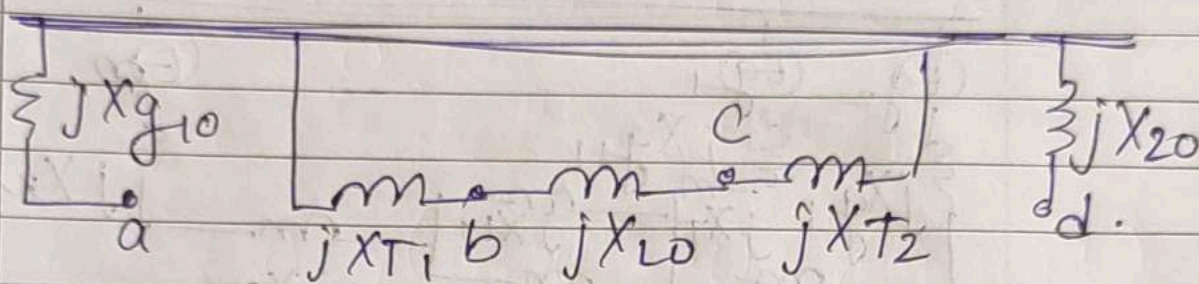 jXg10
a
jXT1 b jXL0 jXT2
C
jX20
d.